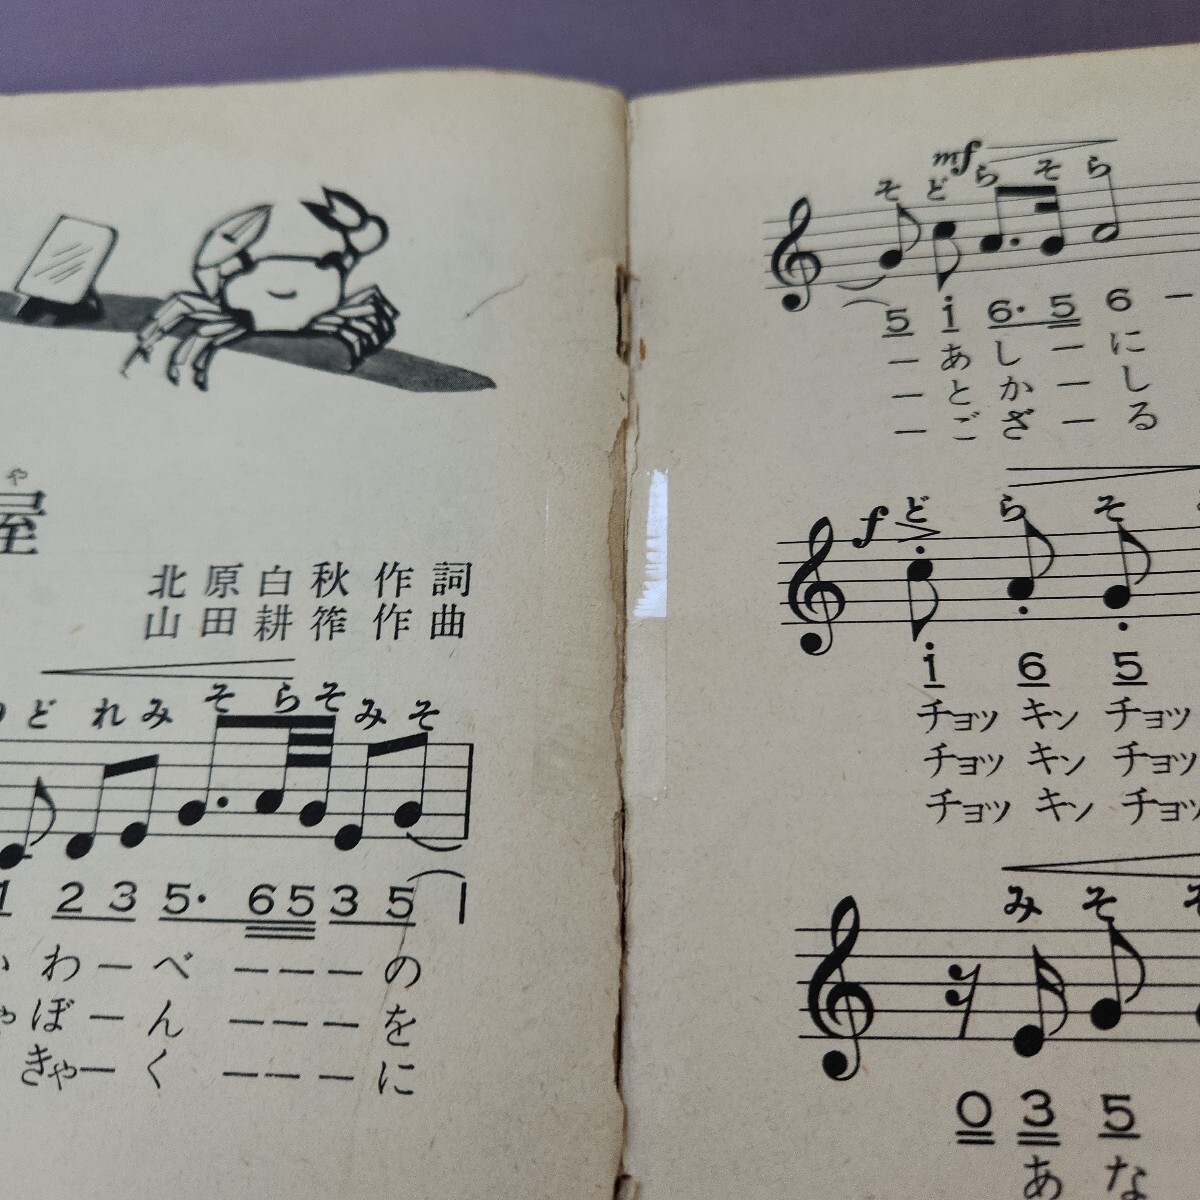 や
屋
北原白秋作詞
山田耕筰作曲
ど れ み そ ら そ み そ
1 2 3 5・ 6 5 3 5
わ ー べ ー ー ー の
ゃ ぼ ー ん ー ー ー を
きゃ ー く ー ー ー に
mf
そ ど ら そ ら
5 i 6・ 5 6 ー
ー あ し ー に
ー と か ー し
ー ご ざ ー る
f ど ら そ
i 6 5
チョッ キン チョッ
チョッ キン チョッ
チョッ キン チョッ
み そ
0 3 5
あ な